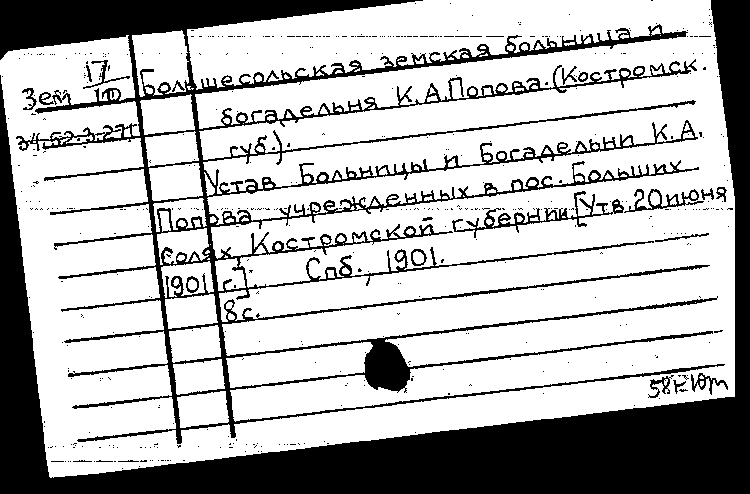 Зем 17
Большесольская земская больница и
34.52.3.271
богадельня К.А.Попова.(Костромск.
губ.).
Устав Больницы и Богадельни К.А.
Попова, учрежденных в пос. Больших
Солях, Костромской губернии.[Утв.20июня
1901 г.]. Спб., 1901.
8с.